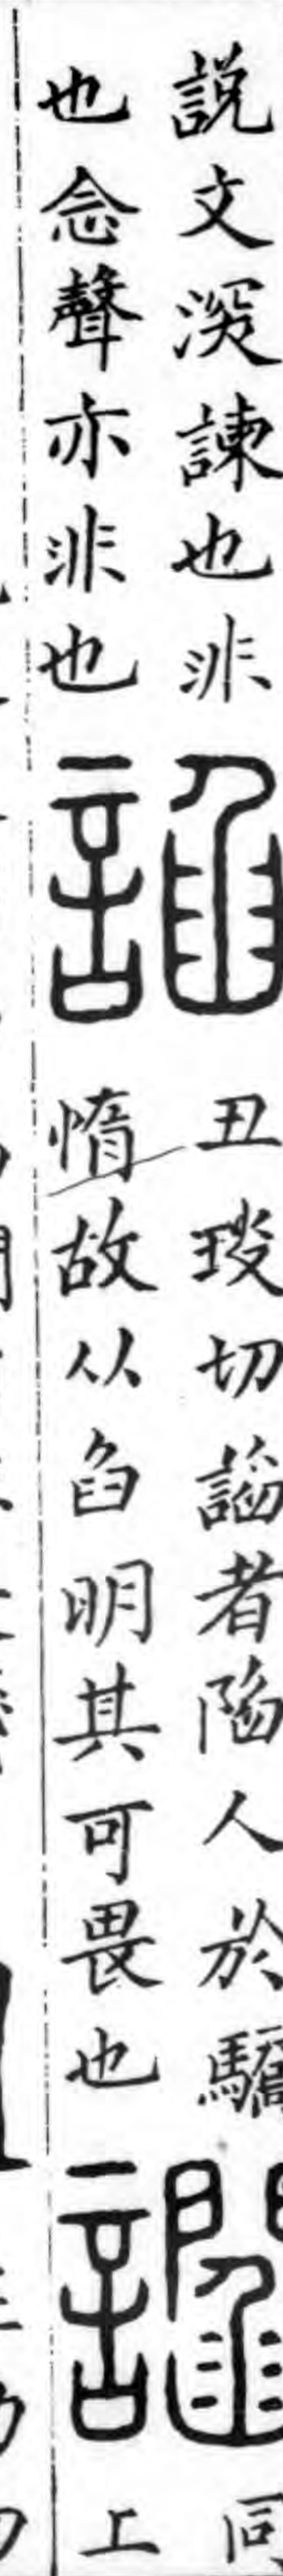 説文深諫也非
也念聲亦非也
諂
丑琰切諂者陷人於驕
惰故从臽明其可畏也
讇
同
上